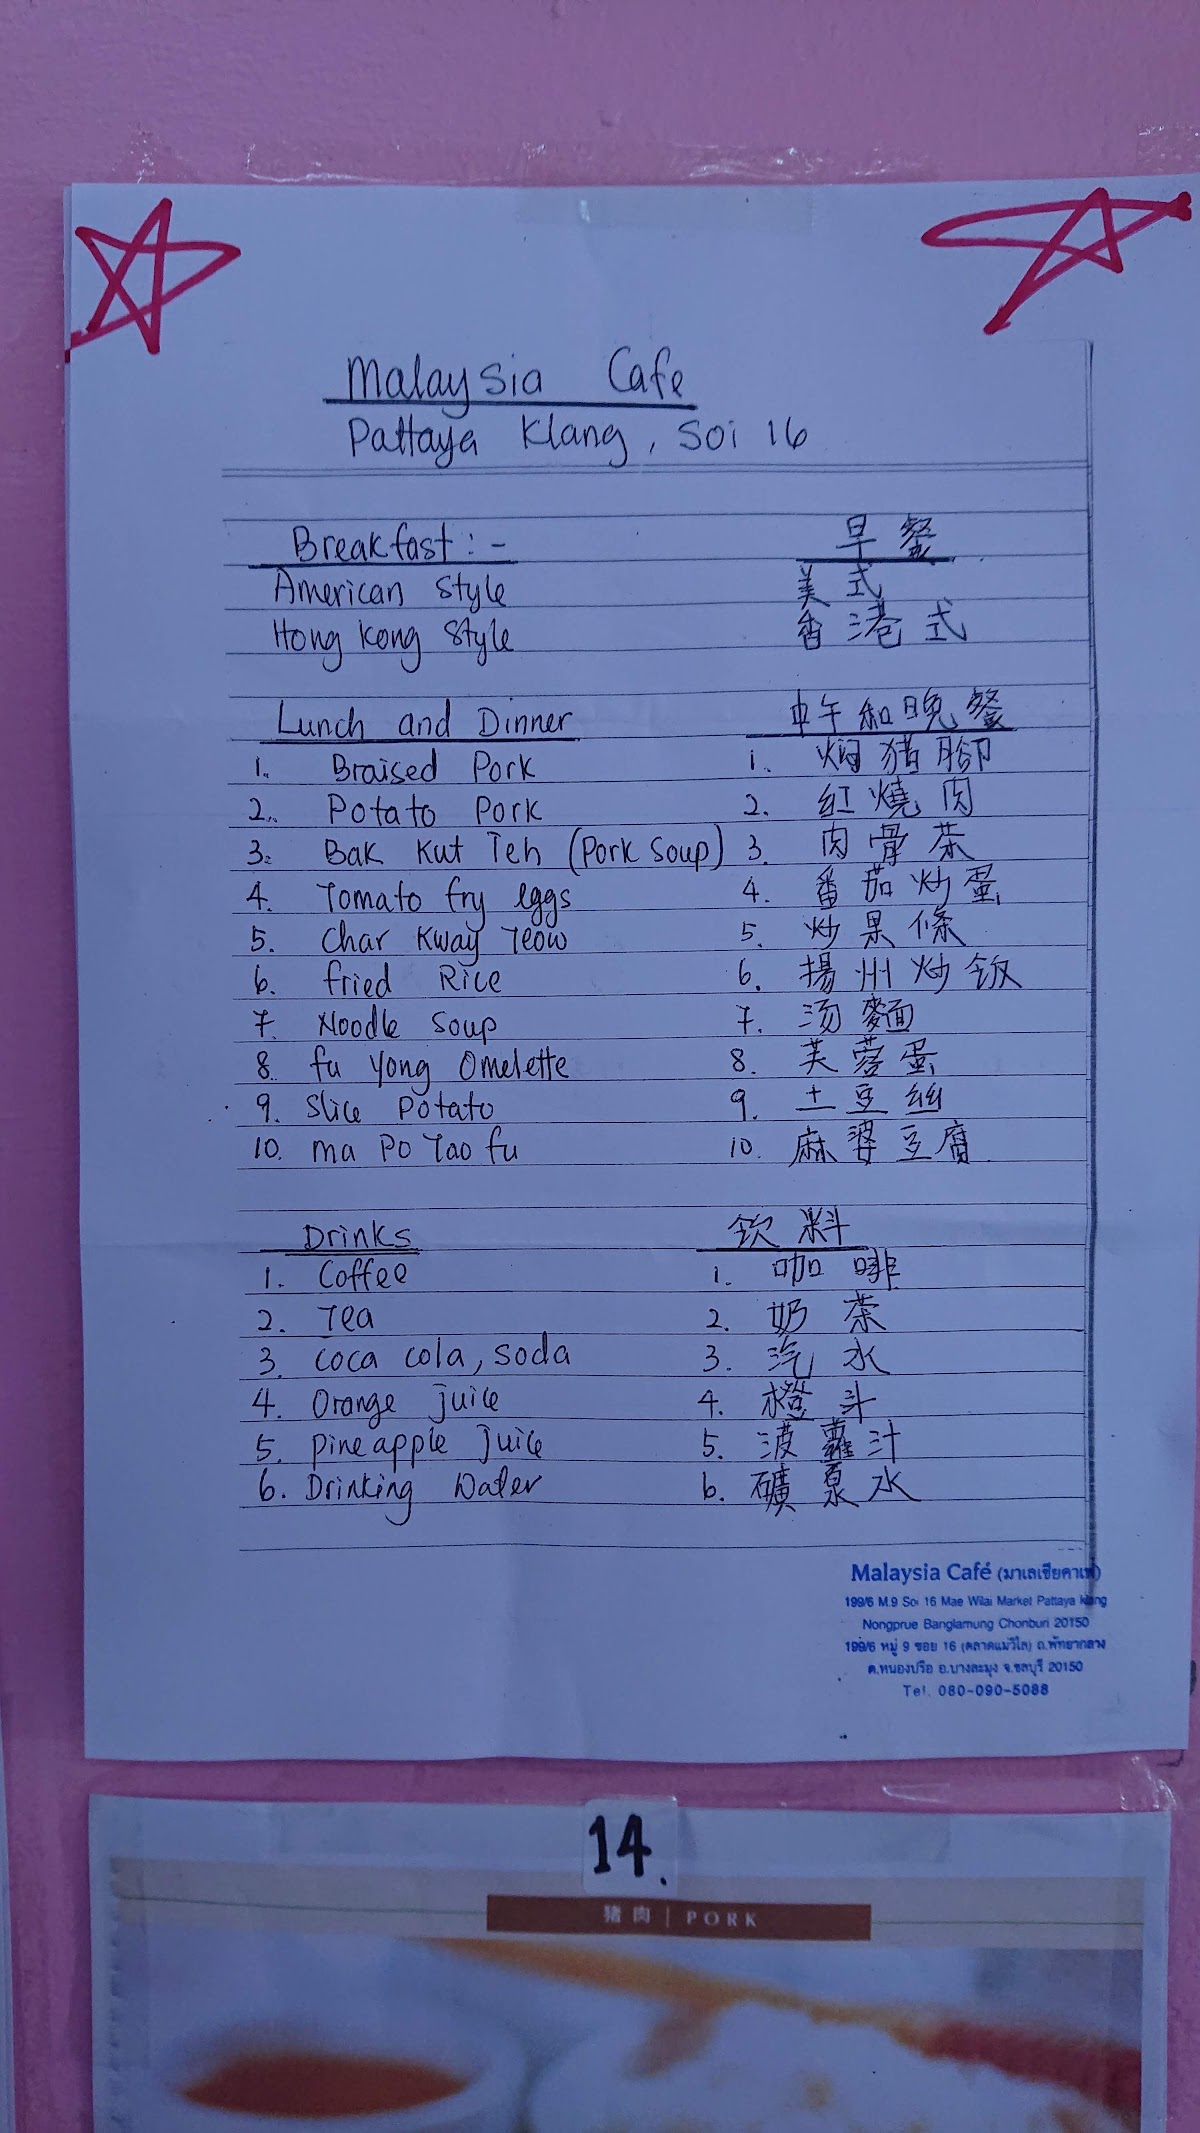 Malaysia Cafe
Pattaya Klang, Soi 16
Breakfast :- 早餐
American Style 美式
Hong Kong Style 香港式
Lunch and Dinner 中午和晚餐
1. Braised Pork 1. 焖猪腳
2. Potato Pork 2. 紅燒肉
3. Bak Kut Teh (Pork Soup) 3. 肉骨茶
4. Tomato fry eggs 4. 番茄炒蛋
5. Char Kway Teow 5. 炒果條
6. fried Rice 6. 揚州炒饭
7. Noodle Soup 7. 汤麵
8. fu Yong Omelette 8. 芙蓉蛋
9. Slice Potato 9. 土豆丝
10. Ma Po Tao fu 10. 麻婆豆腐
Drinks 饮料
1. Coffee 1. 咖啡
2. Tea 2. 奶茶
3. Coca cola, Soda 3. 汽水
4. Orange juice 4. 橙汁
5. pineapple juice 5. 菠蘿汁
6. Drinking Water 6. 礦泉水
Malaysia Café (มาเลเซียคาเฟ่)
199/6 M.9 Soi 16 Mae Wilai Market Pattaya klang
Nongprue Banglamung Chonburi 20150
199/6 หมู่ 9 ซอย 16 (ตลาดแม่วิไล) ถ.พัทยากลาง
ต.หนองปรือ อ.บางละมุง จ.ชลบุรี 20150
Tel. 080-090-5088
14.
猪肉 | PORK